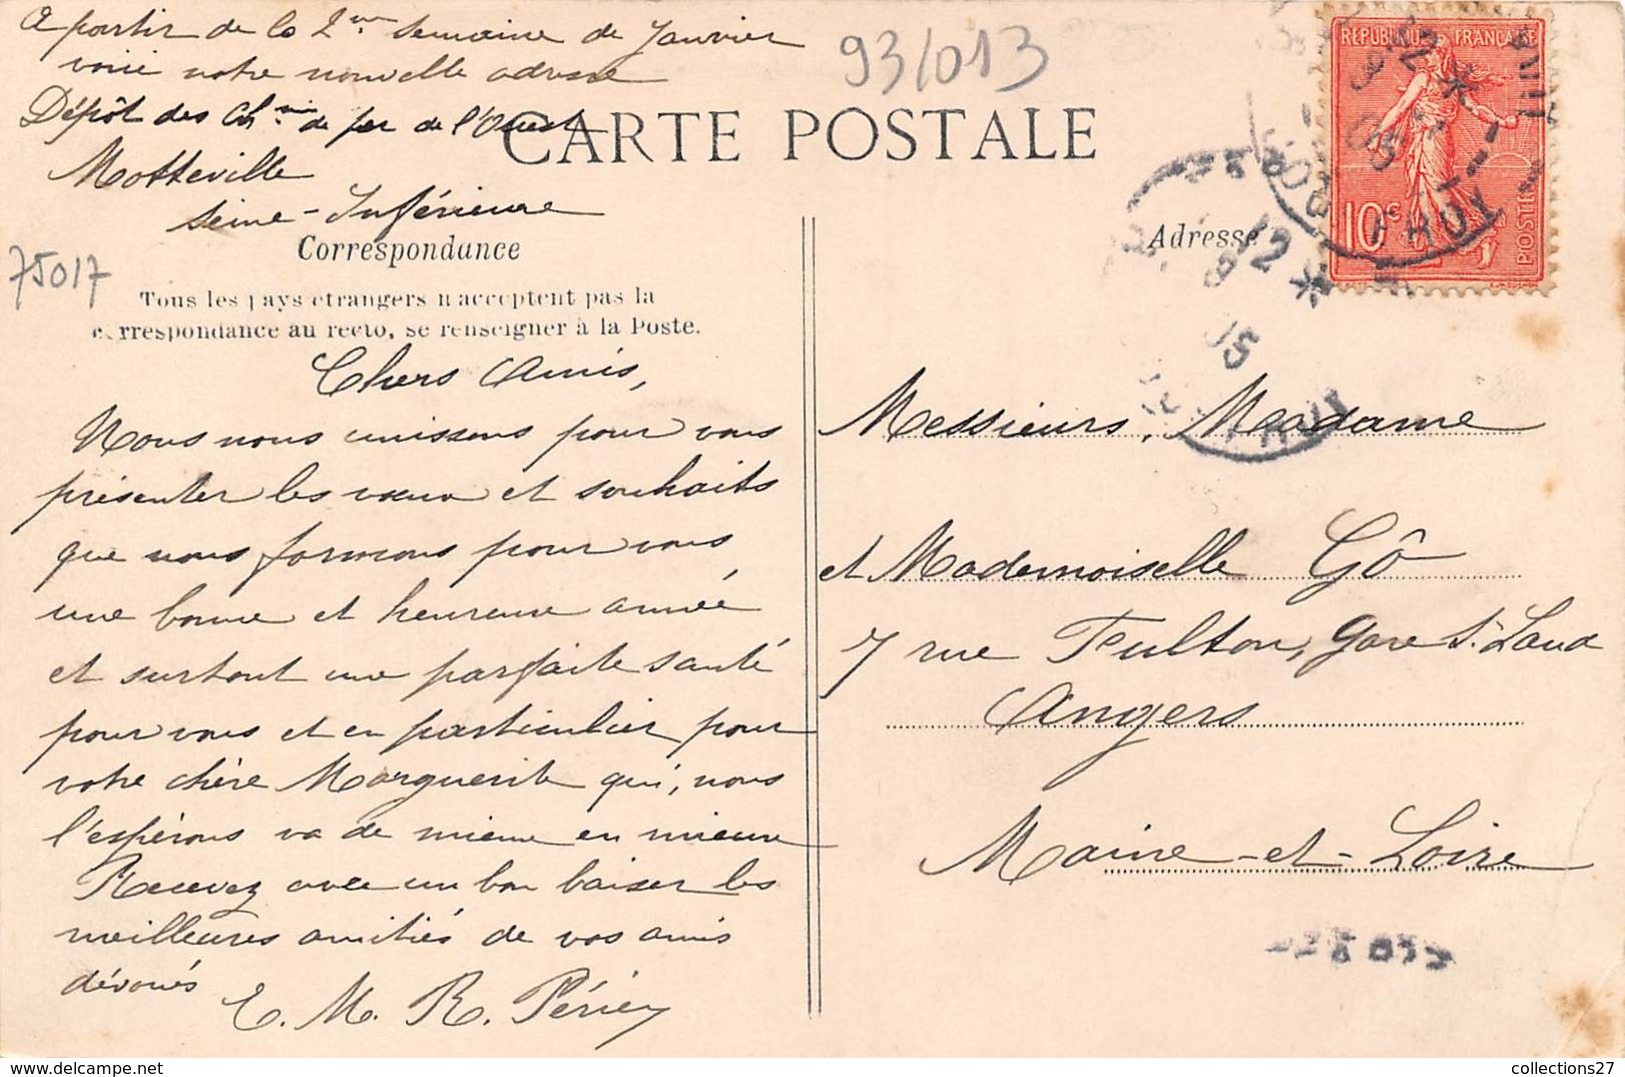 A partir de la 2me semaine de Janvier
voici notre nouvelle adresse
Dépôt des Ch. de fer de l'Ouest
Motteville
Seine-Inférieure
93/013
CARTE POSTALE
75017
Correspondance
Tous les pays étrangers n'acceptent pas la
correspondance au recto, se renseigner à la Poste.
Chers Amis,
Nous nous unissons pour vous
présenter les vœux et souhaits
que nous formons pour vous
une bonne et heureuse année
et surtout une parfaite santé
pour vous et en particulier pour
votre chère Marguerite qui, nous
l'espérons va de mieux en mieux
Recevez avec un bon baiser les
meilleures amitiés de vos amis
dévoués
E. M. R. Périer
REPUBLIQUE FRANÇAISE
10c
POSTES
Adresse
Messieurs, Madame
et Mademoiselle Gô
7 rue Fulton, Gare St Laud
Angers
Maine-et-Loire
www.delcampe.net
collections27